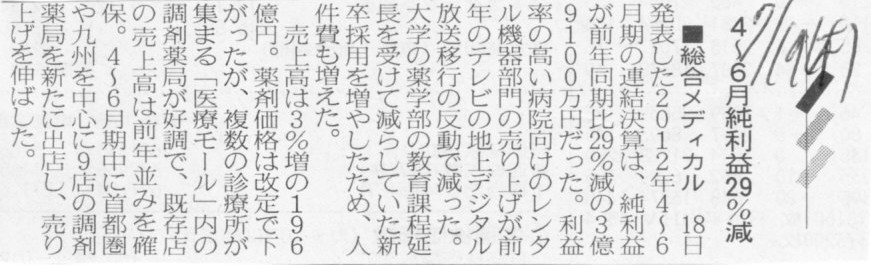 7/19(木)
4〜6月純利益29%減
■総合メディカル　18日
発表した2012年4〜6
月期の連結決算は、純利益
が前年同期比29%減の3億
9100万円だった。利益
率の高い病院向けのレンタ
ル機器部門の売り上げが前
年のテレビの地上デジタル
放送移行の反動で減った。
大学の薬学部の教育課程延
長を受けて減らしていた新
卒採用を増やしたため、人
件費も増えた。
　売上高は3%増の196
億円。薬剤価格は改定で下
がったが、複数の診療所が
集まる「医療モール」内の
調剤薬局が好調で、既存店
の売上高は前年並みを確
保。4〜6月期中に首都圏
や九州を中心に9店の調剤
薬局を新たに出店し、売り
上げを伸ばした。